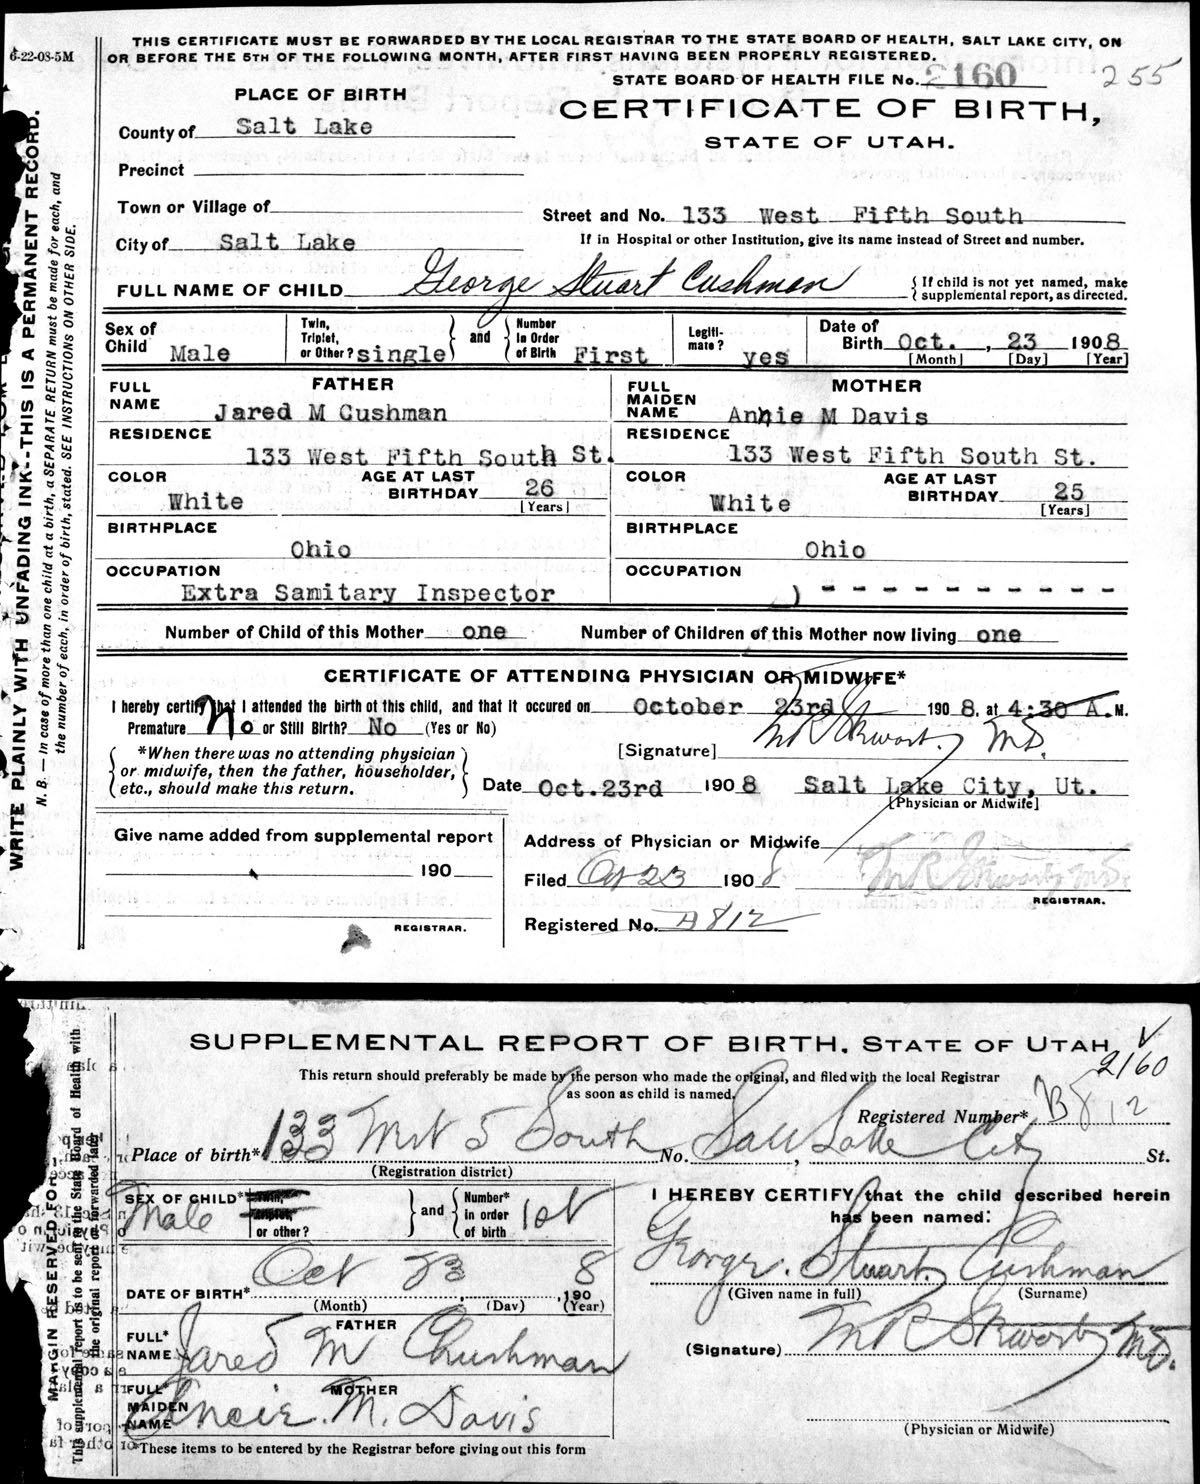 6-22-08-5M
THIS CERTIFICATE MUST BE FORWARDED BY THE LOCAL REGISTRAR TO THE STATE BOARD OF HEALTH, SALT LAKE CITY, ON
OR BEFORE THE 5TH OF THE FOLLOWING MONTH, AFTER FIRST HAVING BEEN PROPERLY REGISTERED.
STATE BOARD OF HEALTH FILE No. 2160 255
PLACE OF BIRTH
CERTIFICATE OF BIRTH,
STATE OF UTAH.
County of Salt Lake
Precinct
Town or Village of
Street and No. 133 West Fifth South
City of Salt Lake
If in Hospital or other Institution, give its name instead of Street and number.
FULL NAME OF CHILD George Stuart Cushman
{ If child is not yet named, make
supplemental report, as directed.
Sex of Child Male
Twin, Triplet, or Other? single } and { Number in Order of Birth First
Legiti-mate? yes
Date of Birth Oct. , 23 1908
[Month] [Day] [Year]
FATHER
MOTHER
FULL NAME Jared M Cushman
FULL MAIDEN NAME Annie M Davis
RESIDENCE 133 West Fifth South St.
RESIDENCE 133 West Fifth South St.
COLOR White AGE AT LAST BIRTHDAY 26 [Years]
COLOR White AGE AT LAST BIRTHDAY 25 [Years]
BIRTHPLACE Ohio
BIRTHPLACE Ohio
OCCUPATION Extra Samitary Inspector
OCCUPATION ) - - - - - - - - - - - -
Number of Child of this Mother one Number of Children of this Mother now living one
CERTIFICATE OF ATTENDING PHYSICIAN OR MIDWIFE*
I hereby certify that I attended the birth of this child, and that it occured on October 23rd 1908, at 4:30 A.M.
Premature No or Still Birth? No (Yes or No)
*When there was no attending physician
or midwife, then the father, householder,
etc., should make this return.
[Signature] M.D.
Date Oct.23rd 1908 Salt Lake City, Ut.
[Physician or Midwife]
Give name added from supplemental report
190
REGISTRAR.
Address of Physician or Midwife
Filed Oct 23 1908
REGISTRAR.
Registered No. 812
WRITE PLAINLY WITH UNFADING INK--THIS IS A PERMANENT RECORD.
N. B. — In case of more than one child at a birth, a SEPARATE RETURN must be made for each, and
the number of each, in order of birth, stated. SEE INSTRUCTIONS ON OTHER SIDE.
SUPPLEMENTAL REPORT OF BIRTH, STATE OF UTAH
2160
This return should preferably be made by the person who made the original, and filed with the local Registrar
as soon as child is named.
Registered Number* B 812
Place of birth* 133 West 5 South No. Salt Lake City St.
(Registration district)
SEX OF CHILD* Male
Twin, Triplet, or other? } and { Number* in order of birth 1st
I HEREBY CERTIFY that the child described herein
has been named:
George Stuart Cushman
(Given name in full) (Surname)
DATE OF BIRTH* Oct 23, 1908
(Month) (Day) (Year)
FATHER
FULL* NAME Jared M Chushman
(Signature) M.D.
MOTHER
FULL* MAIDEN NAME M. Davis
(Physician or Midwife)
*These items to be entered by the Registrar before giving out this form
MARGIN RESERVED FOR
This supplemental report is to be sent to the State Board of Health with
the original report or forwarded later